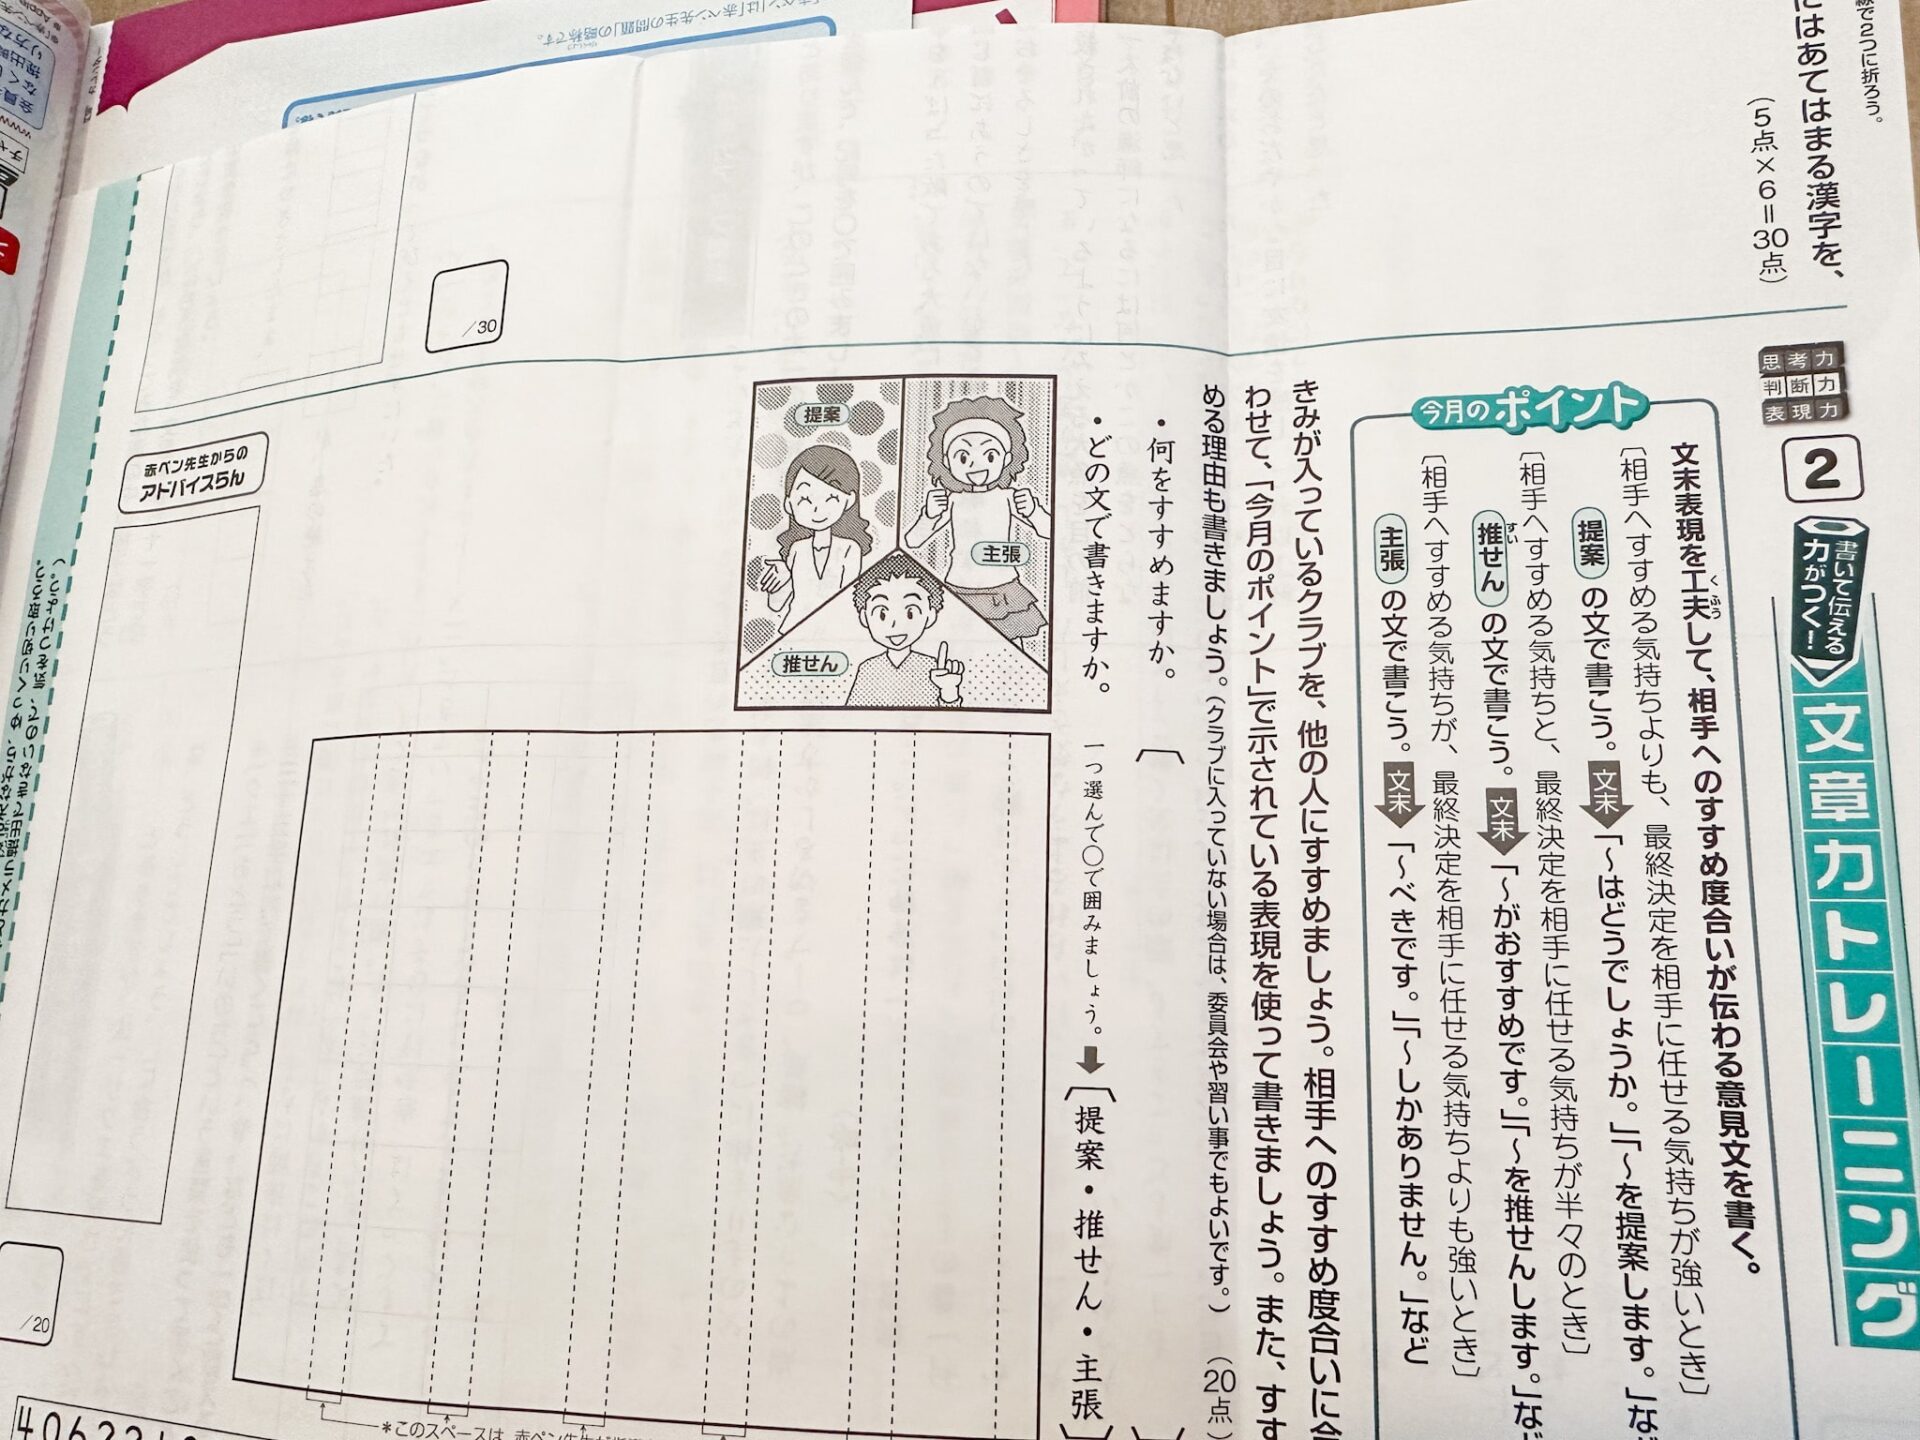 線で2つに折ろう。
にはあてはまる漢字を、
(5点×6=30点)
/30
思考力
判断力
表現力
2
書いて伝える
力がつく!
文章力トレーニング
今月のポイント
文末表現を工夫して、相手へのすすめ度合いが伝わる意見文を書く。
くふう
〔相手へすすめる気持ちよりも、最終決定を相手に任せる気持ちが強いとき〕
提案の文で書こう。文末「〜はどうでしょうか。」「〜を提案します。」など
〔相手へすすめる気持ちと、最終決定を相手に任せる気持ちが半々のとき〕
推せんの文で書こう。文末「〜がおすすめです。」「〜を推せんします。」など
すい
〔相手へすすめる気持ちが、最終決定を相手に任せる気持ちよりも強いとき〕
主張の文で書こう。文末「〜べきです。」「〜しかありません。」など
きみが入っているクラブを、他の人にすすめましょう。相手へのすすめ度合いに合
わせて、「今月のポイント」で示されている表現を使って書きましょう。また、すす
める理由も書きましょう。(クラブに入っていない場合は、委員会や習い事でもよいです。)(20点)
・何をすすめますか。
・どの文で書きますか。
一つ選んで○で囲みましょう。
〔提案・推せん・主張〕
提案
主張
推せん
赤ペン先生からの
アドバイスらん
/20
*このスペースは、赤ペン先生が
「赤ペン」は「赤ペン先生の問題」の略称です。